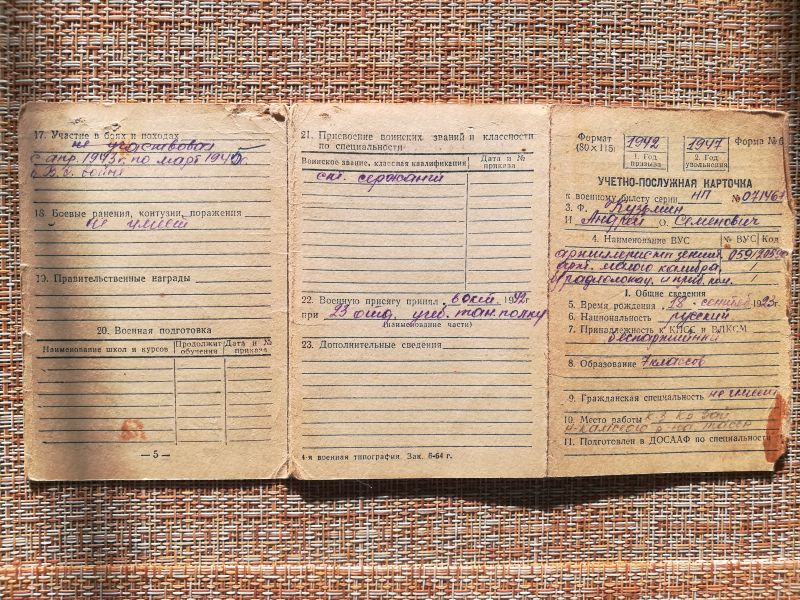 17. Участие в боях и походах
не участвовал
с апр. 1943г. по март 1945г.
18. Боевые ранения, контузии, поражения
не имеет
19. Правительственные награды
20. Военная подготовка
Наименование школ и курсов
Продолжит обучения
Дата и № приказа
— 5 —
21. Присвоение воинских званий и классности
по специальности
Воинское звание, классная квалификация
Дата и № приказа
ст. сержант
22. Военную присягу принял окт. 1942г
при 23 отд. уч. тан. полку
(наименование части)
23. Дополнительные сведения
4-я военная типография. Зак. 6-64 г.
Формат
(80×115)
1942
1. Год
призыва
1947
2. Год
увольнения
Форма № 6
УЧЕТНО-ПОСЛУЖНАЯ КАРТОЧКА
к военному билету серии НП №
3. Ф. Кузьмин
И. Андрей О. Семенович
4. Наименование ВУС
№ ВУС
Код
артиллерист
калибра
1. Общие сведения
5. Время рождения 18 сентября 1923г.
6. Национальность русский
7. Принадлежность к КПСС и ВЛКСМ
беспартийный
8. Образование 7 классов
9. Гражданская специальность не имеет
10. Место работы
11. Подготовлен в ДОСААФ по специальности